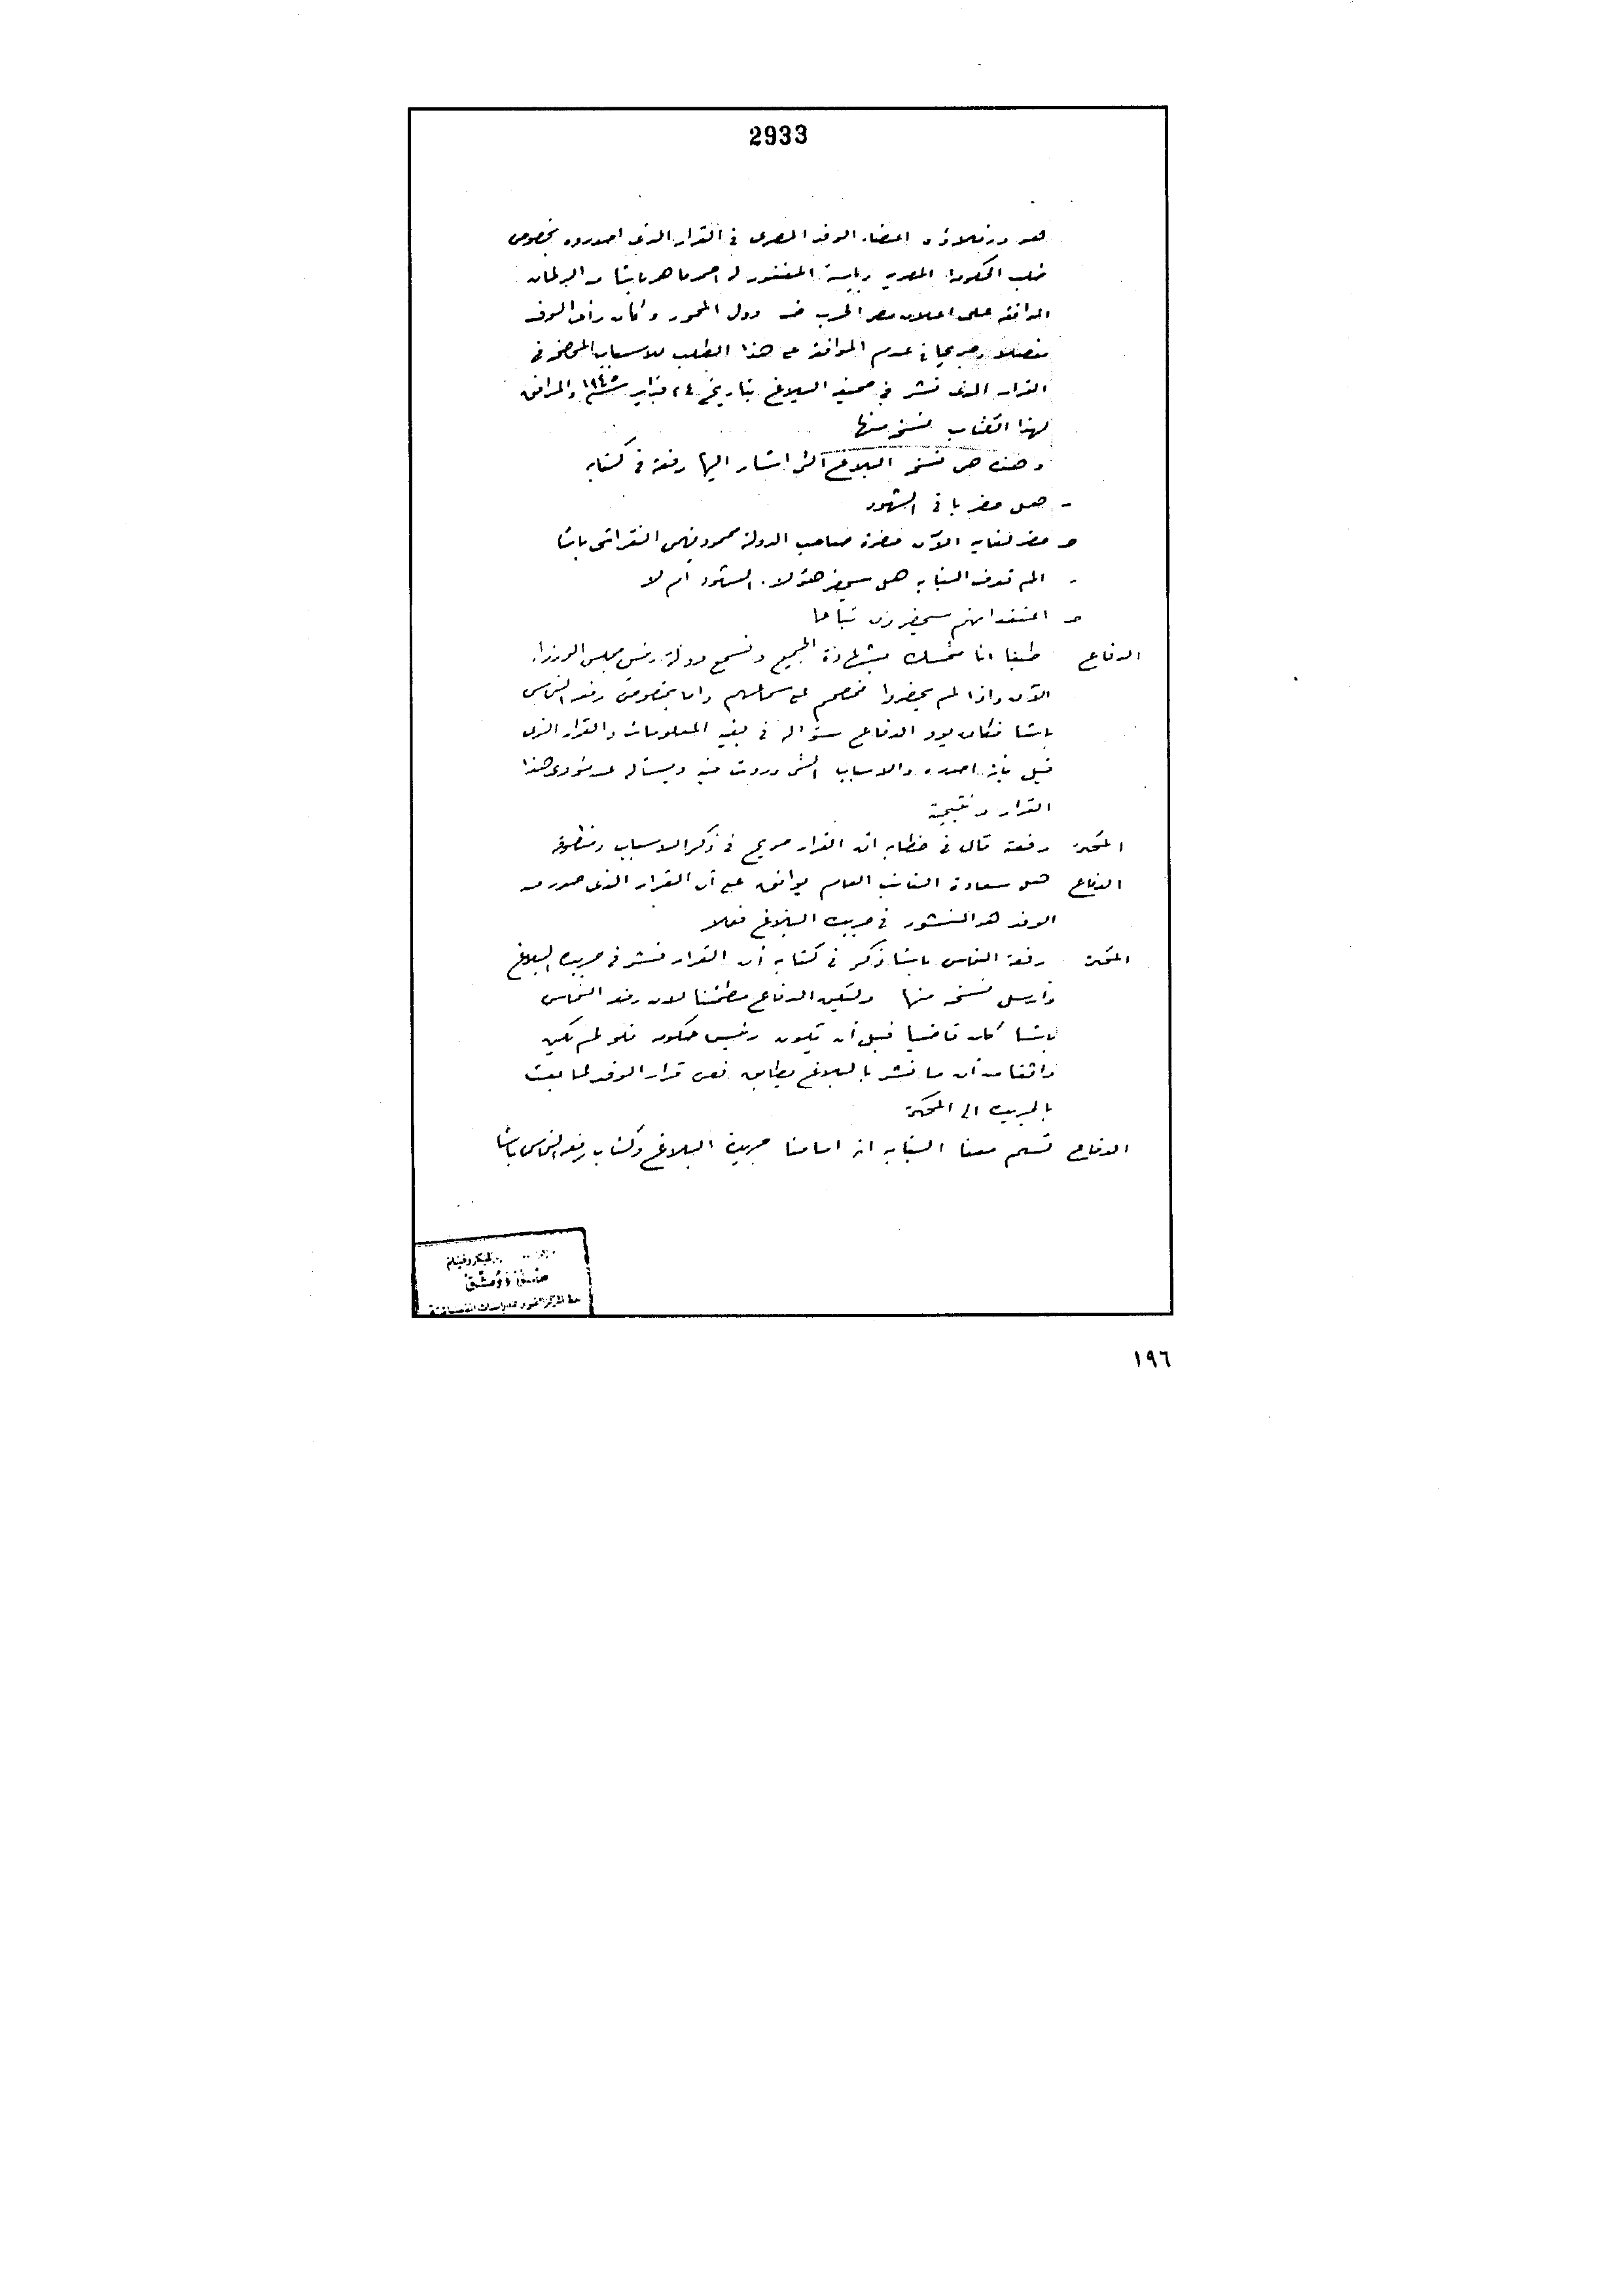 2933
هو وزملاؤه اعضاء الوفد المصرى فى القرار الذى اصدروه بخصوص
طلب الحكومة المصرية برياسة المغفور له احمد ماهر باشا من البرلمان
الموافقة على اعلان مصر الحرب ضد دول المحور وكان رأى الوفد
مفصلا وصريحا فى عدم الموافقة على هذا الطلب للاسباب الموضحة فى
القرار الذى نشر فى صحيفة البلاغ بتاريخ ٢٤ فبراير سنة ١٩٤٥ والمرافق
لهذا الكتاب نسخة منها
وهذه هى نسخة البلاغ التى اشار اليها رفعته فى كتابه
- هل حضر باقى الشهود
حـ حضر لغاية الآن حضرة صاحب الدولة محمود فهمى النقراشى باشا
- الم تعرف النيابة هل سيحضر هؤلاء الشهود أم لا
حـ اعتقد انهم سيحضرون تباعا
الدفاع طبعا انا متمسك بشهادة الجميع ونسمع دولة رئيس مجلس الوزراء
الآن واذا لم يحضروا نصمم على سماعهم واما بخصوص رفعة النحاس
باشا فكان يود الدفاع سؤاله فى بقية المعلومات والقرار الذى
قيل بأنه اصدره والاسباب التى وردت فيه ويسأله عن مؤدى هذا
القرار ونتيجته
المحكمة رفعته قال فى خطابه ان القرار صريح فى ذكر الاسباب ومنطوقه
الدفاع هل سعادة النائب العام يوافق على أن القرار الذى صدر من
الوفد هو المنشور فى جريدة البلاغ فعلا
المحكمة رفعة النحاس باشا ذكر فى كتابه أن القرار نشر فى جريدة البلاغ
وأرسل نسخة منها وليكن الدفاع مطمئنا لان رفعة النحاس
باشا كان قاضيا قبل أن يكون رئيس حكومة فلو لم يكن
واثقا من أن ما نشر بالبلاغ يطابق نص قرار الوفد لما بعث
بالجريدة الى المحكمة
الدفاع تسلم معنا النيابة ان امامنا جريدة البلاغ وكتاب رفعة النحاس باشا
١٩٦